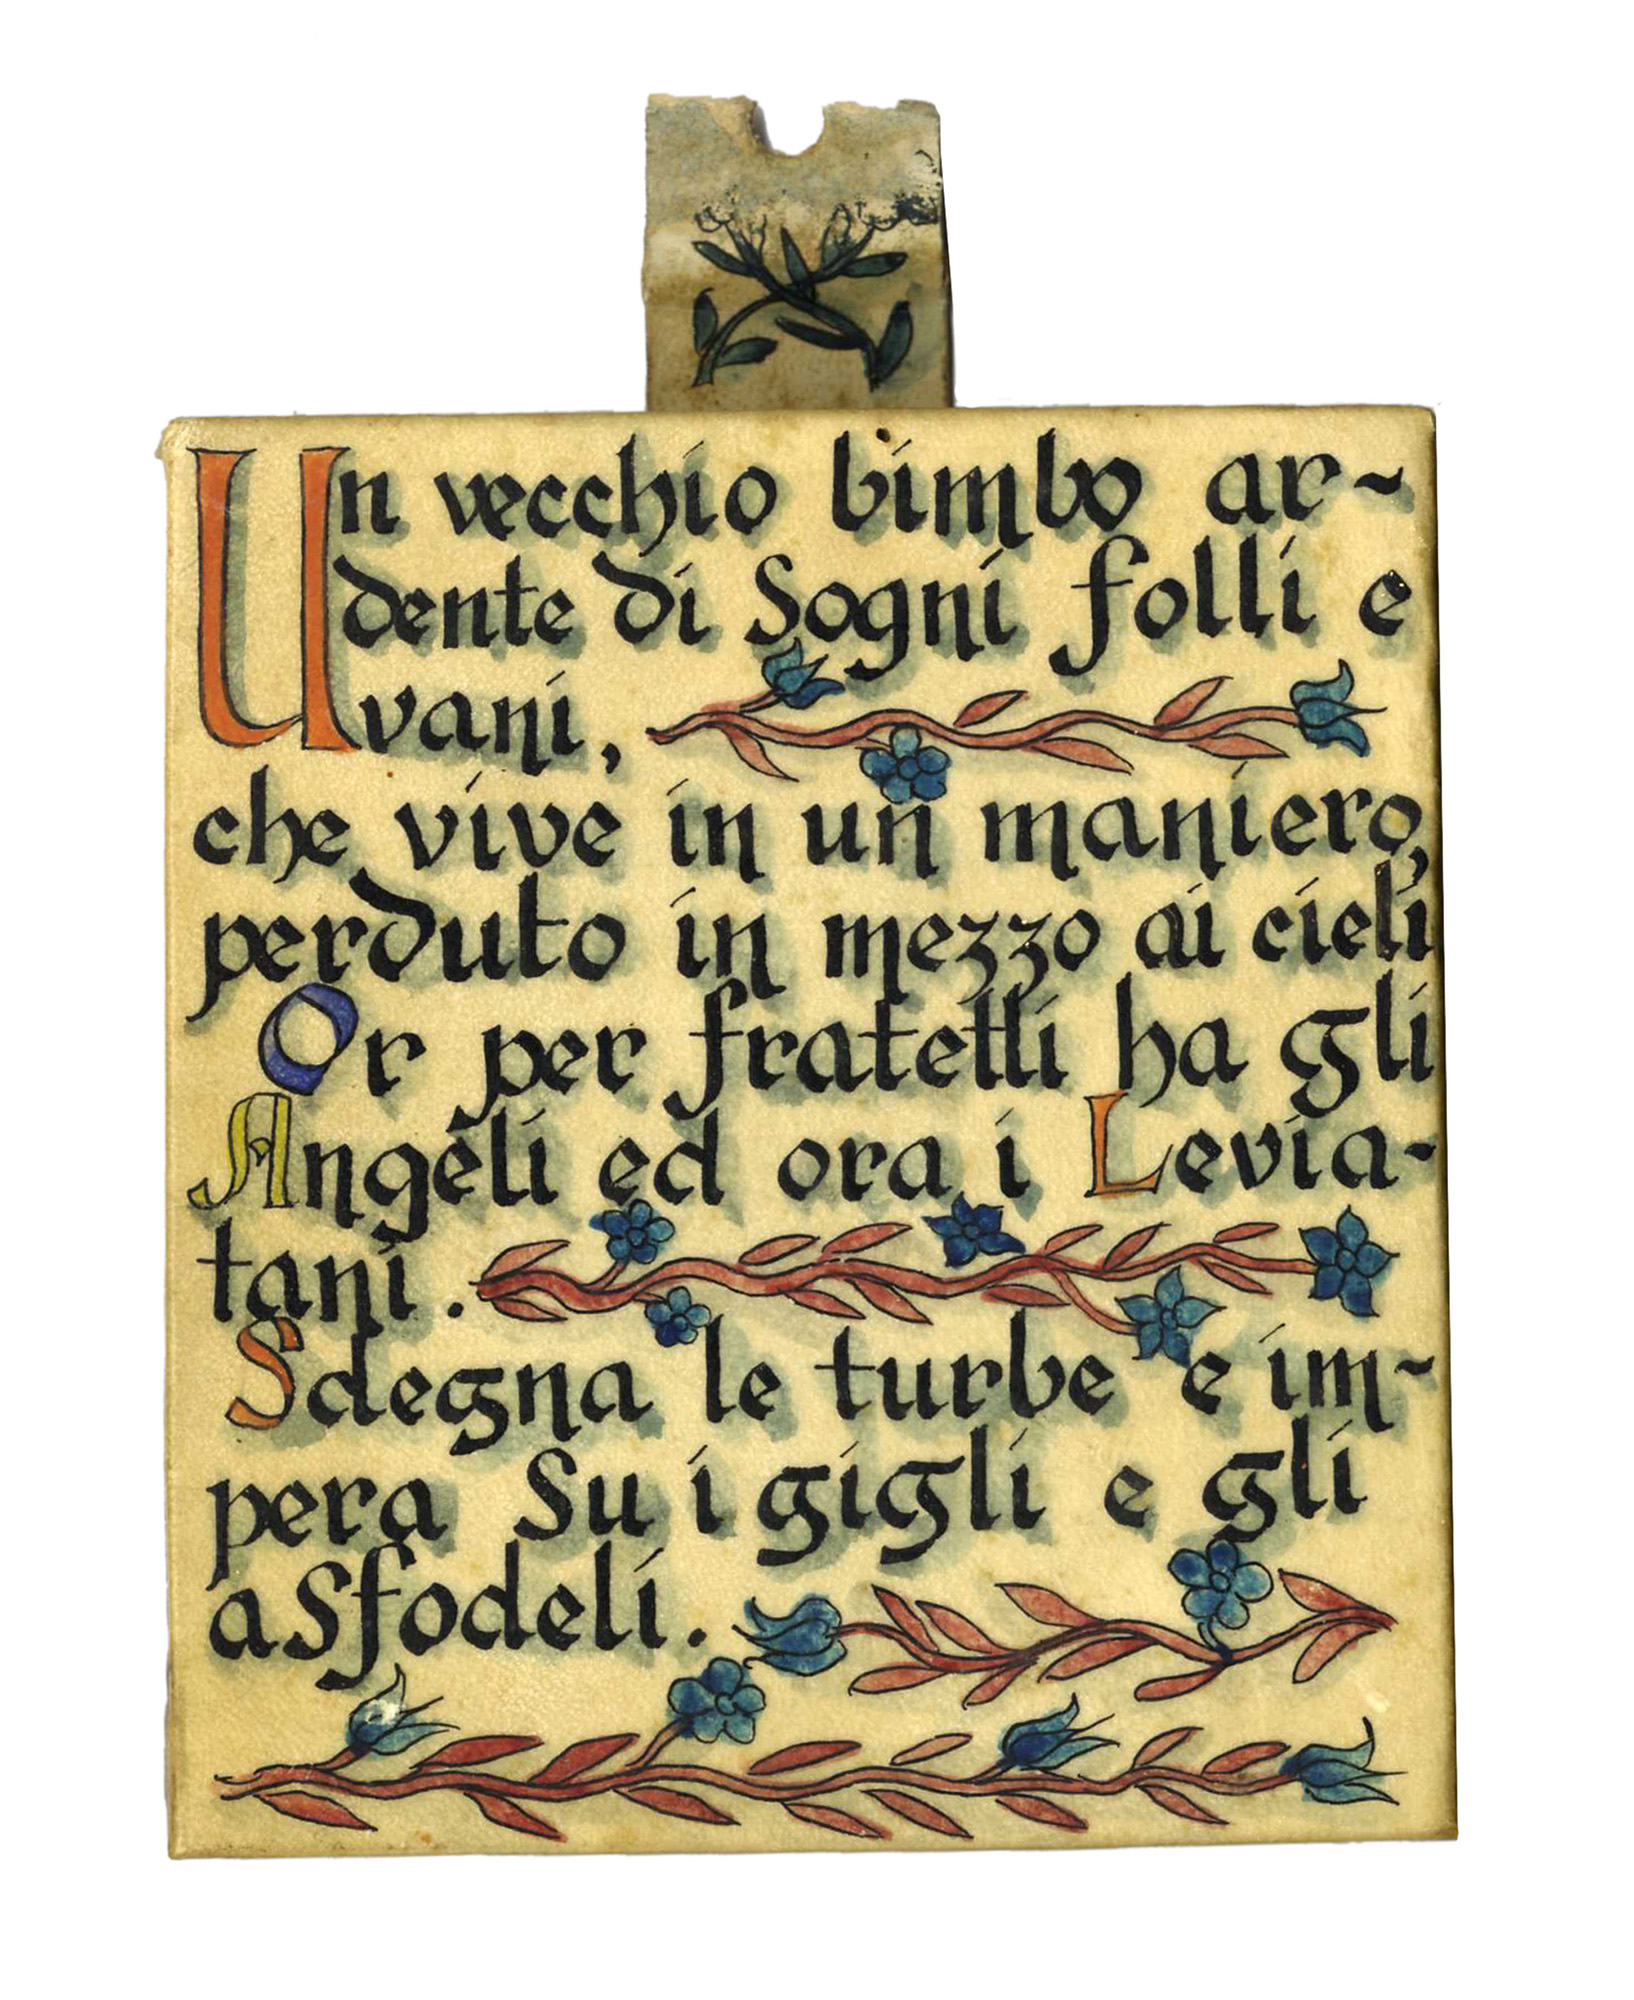 Un vecchio bimbo ar~
dente di Sogni folli e
vani,
che vive in un maniero,
perduto in mezzo ai cieli
Or per fratelli ha gli
Angeli ed ora i Levia-
tani.
Sdegna le turbe e im~
pera Su i gigli e gli
aSfodeli.